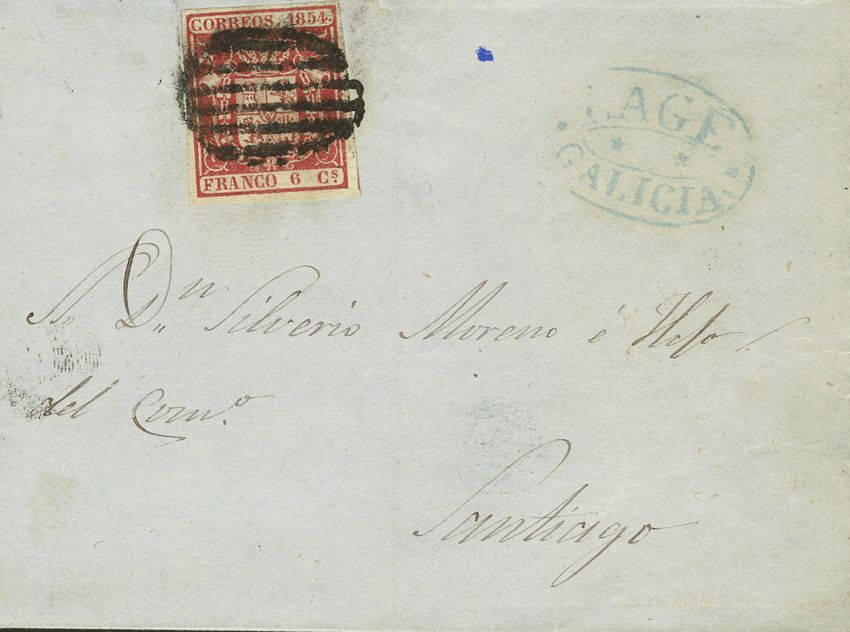 CORREOS. 1854.
FRANCO 6 Cs.
LAGE
GALICIA.
Sr. Dn. Silverio Moreno é Hijo
del Como.
Santiago